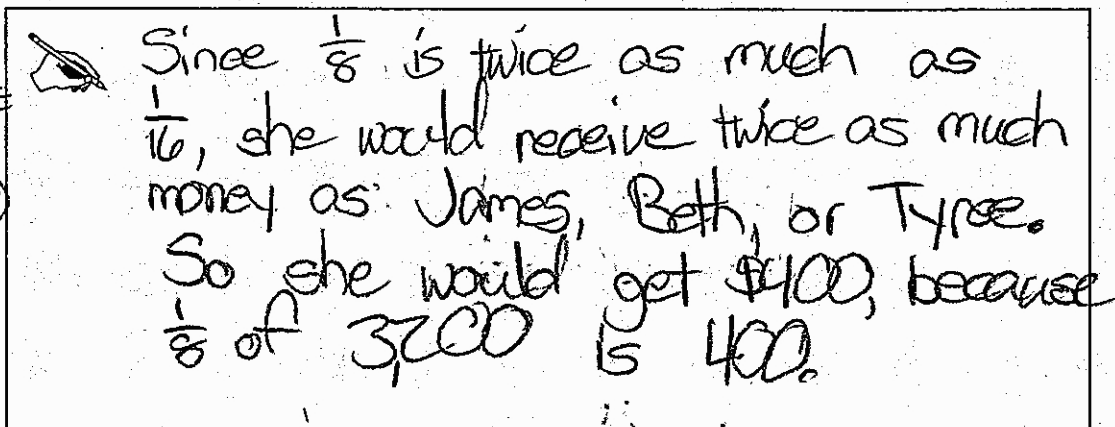 Since 1/8 is twice as much as
1/16, she would receive twice as much
money as James, Beth, or Tyree.
So she would get $400, because
1/8 of 3,200 is 400.